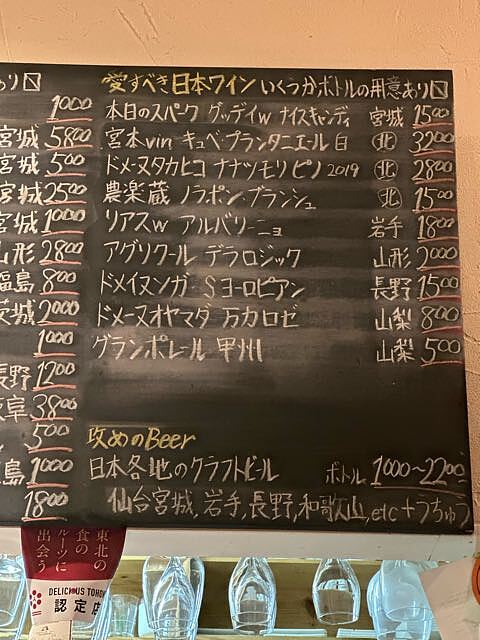 あり
1000
宮城 5800
宮城 500
宮城 2500
宮城 1000
山形 2800
福島 800
茨城 2000
1000
長野 1200
岐阜 3800
500
島 1000
1800
愛すべき日本ワイン いくつかボトルの用意あり
本日のスパーク グッデイw ナイスキャンディ 宮城 1500
宮本vin キュベ・プランタニエール 白 北 3200
ドメーヌタカヒコ ナナツモリピノ2019 北 2800
農楽蔵 ノラポン・ブランシュ 北 1500
リアスw アルバリーニョ 岩手 1800
アグリクール デラロジック 山形 2000
ドメイヌヌンガ Sヨーロピアン 長野 1500
ドメーヌオヤマダ 万力ロゼ 山梨 800
グランポレール 甲州 山梨 500
攻めのBeer
日本各地のクラフトビール ボトル 1000〜2200
仙台宮城,岩手,長野,和歌山,etc+うちゅう
東北の
食の
ルーツに
出会う
DELICIOUS TOHO
認定店